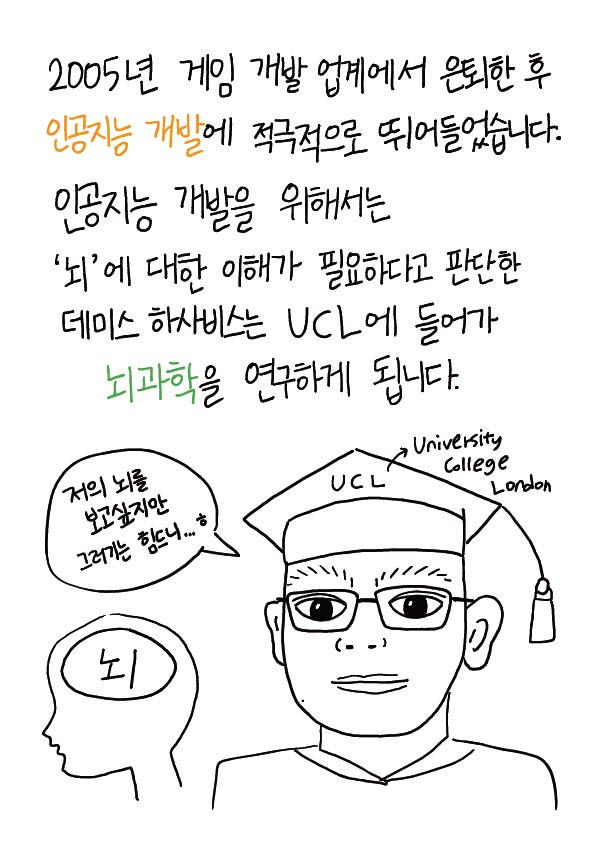 2005년 게임 개발 업계에서 은퇴한 후
인공지능 개발에 적극적으로 뛰어들었습니다.
인공지능 개발을 위해서는
'뇌'에 대한 이해가 필요하다고 판단한
데미스 하사비스는 UCL에 들어가
뇌과학을 연구하게 됩니다.
UCL
University
College
London
저의 뇌를
보고싶지만
그러기는 힘드니...ㅎ
뇌